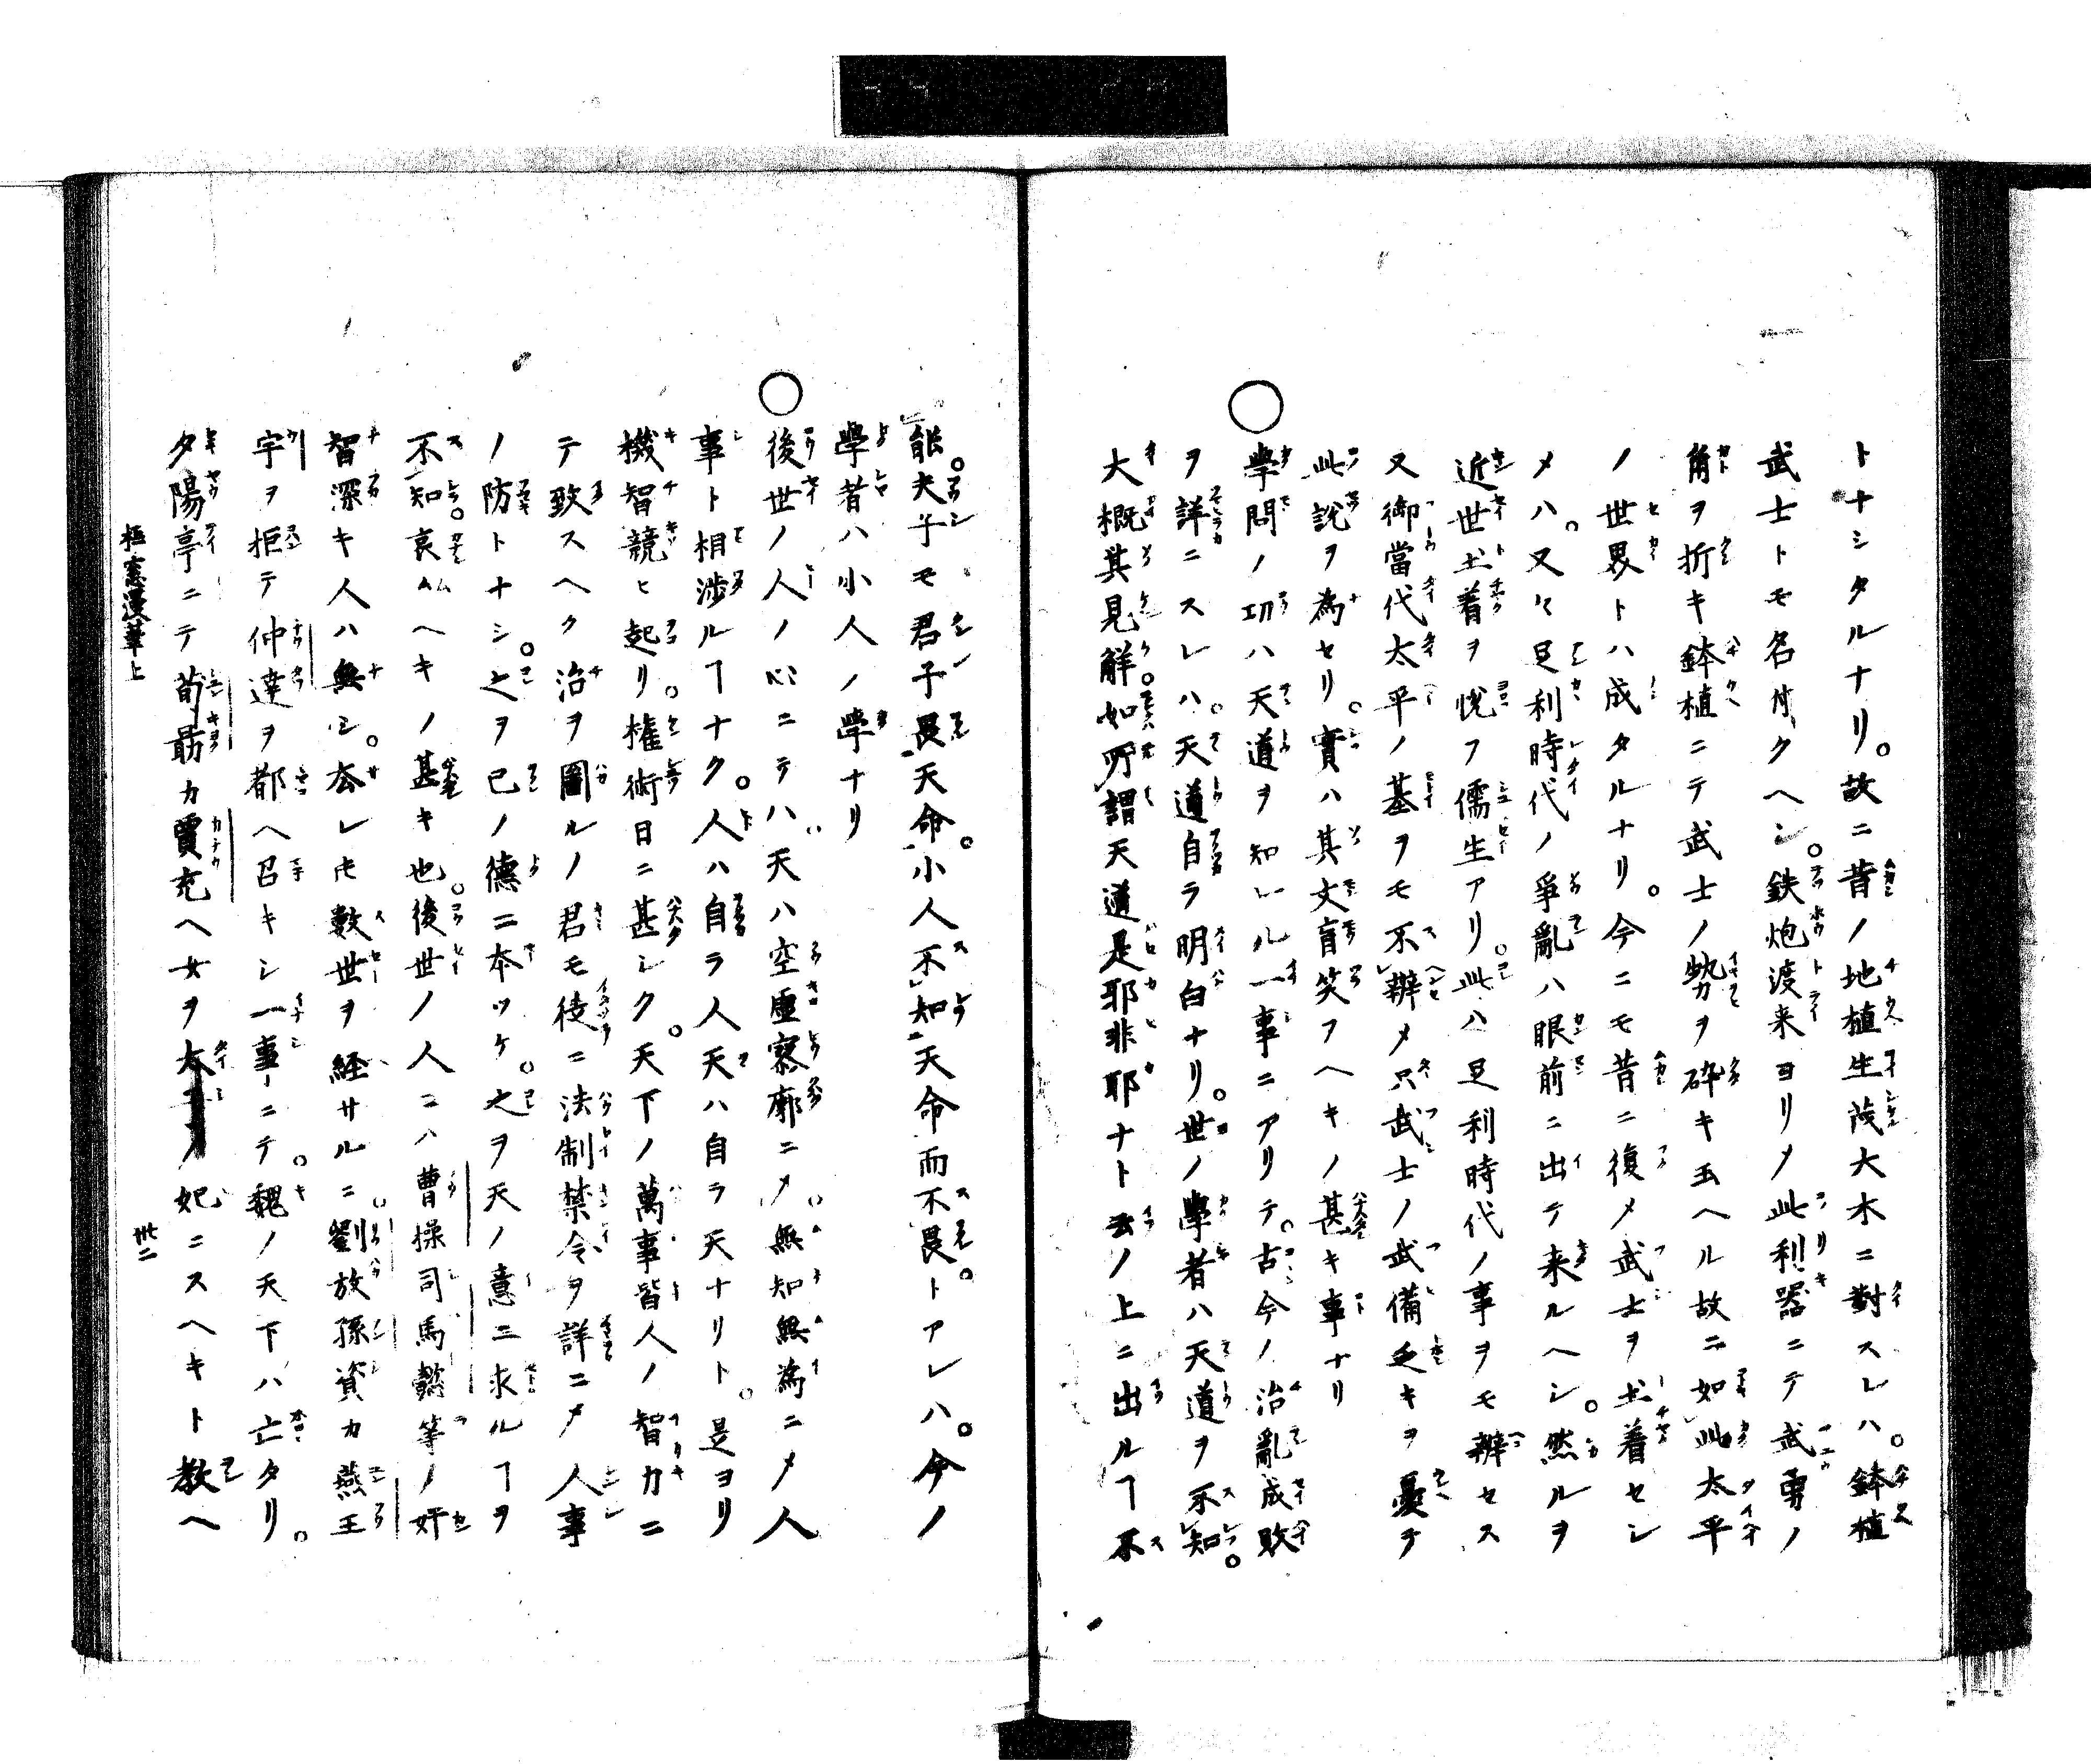 トナシタルナリ。故ニ昔ノ地植生茂大木ニ對スレハ。鉢植
武士トモ名付クヘシ。鉄炮渡来ヨリメ此利器ニテ武勇ノ
角ヲ折キ鉢植ニテ武士ノ勢ヲ砕キ玉ヘル故ニ如此太平
ノ世界トハ成タルナリ。今ニモ昔ニ復メ武士ヲ土着セシ
メハ。又々足利時代ノ爭亂ハ眼前ニ出テ来ルヘシ。然ルヲ
近世土着ヲ悦フ儒生アリ。此ハ足利時代ノ事ヲモ辨セス
又御當代太平ノ基ヲモ不辨メ只武士ノ武備乏キヲ憂テ
此説ヲ為セリ。實ハ其文盲笑フヘキノ甚キ事ナリ
○學問ノ功ハ天道ヲ知レル一事ニアリテ。古今ノ治亂成敗
ヲ詳ニスレハ。天道自ラ明白ナリ。世ノ學者ハ天道ヲ不知。
大概其見解。如所謂天道是耶非耶ナト云ノ上ニ出ルヿ不
能。夫子モ君子畏天命。小人不知天命而不畏。トアレハ。今ノ
學者ハ小人ノ學ナリ
○後世ノ人ノ心ニテハ天ハ空虚寥廓ニメ。無知無為ニメ人
事ト相渉ルヿナク。人ハ自ラ人天ハ自ラ天ナリト。是ヨリ
機智競ヒ起リ。權術日ニ甚シク。天下ノ萬事皆人ノ智力ニ
テ致スヘク治ヲ圖ルノ君モ徒ニ法制禁令ヲ詳ニメ人事
ノ防トナシ。之ヲ己ノ德ニ本ツケ。之ヲ天ノ意ニ求ルヿヲ
不知。哀ムヘキノ甚キ也。後世ノ人ニハ曹操司馬懿等ノ奸
智深キ人ハ無シ。夲レ𪜈數世ヲ経サルニ。劉放孫資カ燕王
宇ヲ拒テ仲達ヲ都ヘ召キシ一事ニテ。魏ノ天下ハ亡タリ。
夕陽亭ニテ荀勗カ賈充ヘ女ヲ太子ノ妃ニスヘキト教ヘ
樞窻漫筆上
卅二